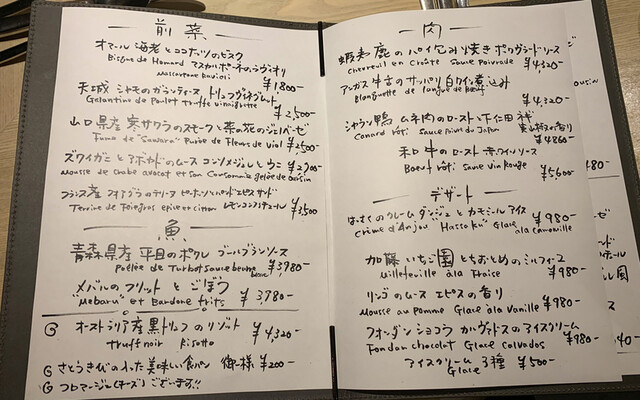 前菜
オマール海老とココナッツのビスク
Bisque de Homard マスカルポーネのラヴィオリ
Mascarpone Ravioli
¥1800-
天城シャモのガランティーヌ トリュフヴィネグレット
Galantine de Poulet truffe vinaigrette ¥2,500-
山口県産 寒サワラのスモークと菜の花のジュレ
Fumé de "Sawara" Purée de Fleurs de Viol ¥2500-
ズワイガニとアボカドのムース コンソメジュレとウニ ¥2900-
Mousse de crabe avocat et son Consommé gelée de oursin
フランス産 フォアグラのテリーヌ
Terrine de Foiegras epice et citron レモンコンフィチュール ¥3,500
魚
青森県産 平目のポワレ ブールブランソース
Poêlée de Turbot sauce beurre blanc ¥3,980-
メバルのフリットとごぼう
"Mebaru" et Bardane frits ¥3980-
G オーストラリア産黒トリュフのリゾット ¥4,320-
truff noir Risotto
G さとうきびの入った美味しい食パン 御一様 ¥200-
G フロマージュ(チーズ)ございます!!
肉
蝦夷鹿のパイ包み焼きポワヴラードソース
Chevreuil en Croûte Sauce Poivrade ¥4,320-
アンガス牛舌のサッパリ白ワイン煮込み
Blanquette de langue de Bœuf ¥4,320-
シャラン鴨ムネ肉のロースト 下仁田葱
Canard rôti sauce poivre du Japon ¥4860-
和牛のロースト赤ワインソース
Boeuf rôti sauce vin Rouge ¥5,600-
デザート
はっさくのクレームダンジュとカモミールアイス ¥980-
Crème d'Anjou "Hassaku" Glace à la camomille
加藤いちご園とちおとめのミルフィーユ
Millefeuille à la Fraise ¥980-
リンゴのムース エピスの香り
Mousse au pomme Glace à la Vanille ¥980-
フォンダンショコラ カルヴァドスのアイスクリーム
Fondan chocolat Glace Calvados ¥980-
アイスクリーム3種 ¥500-
Glace